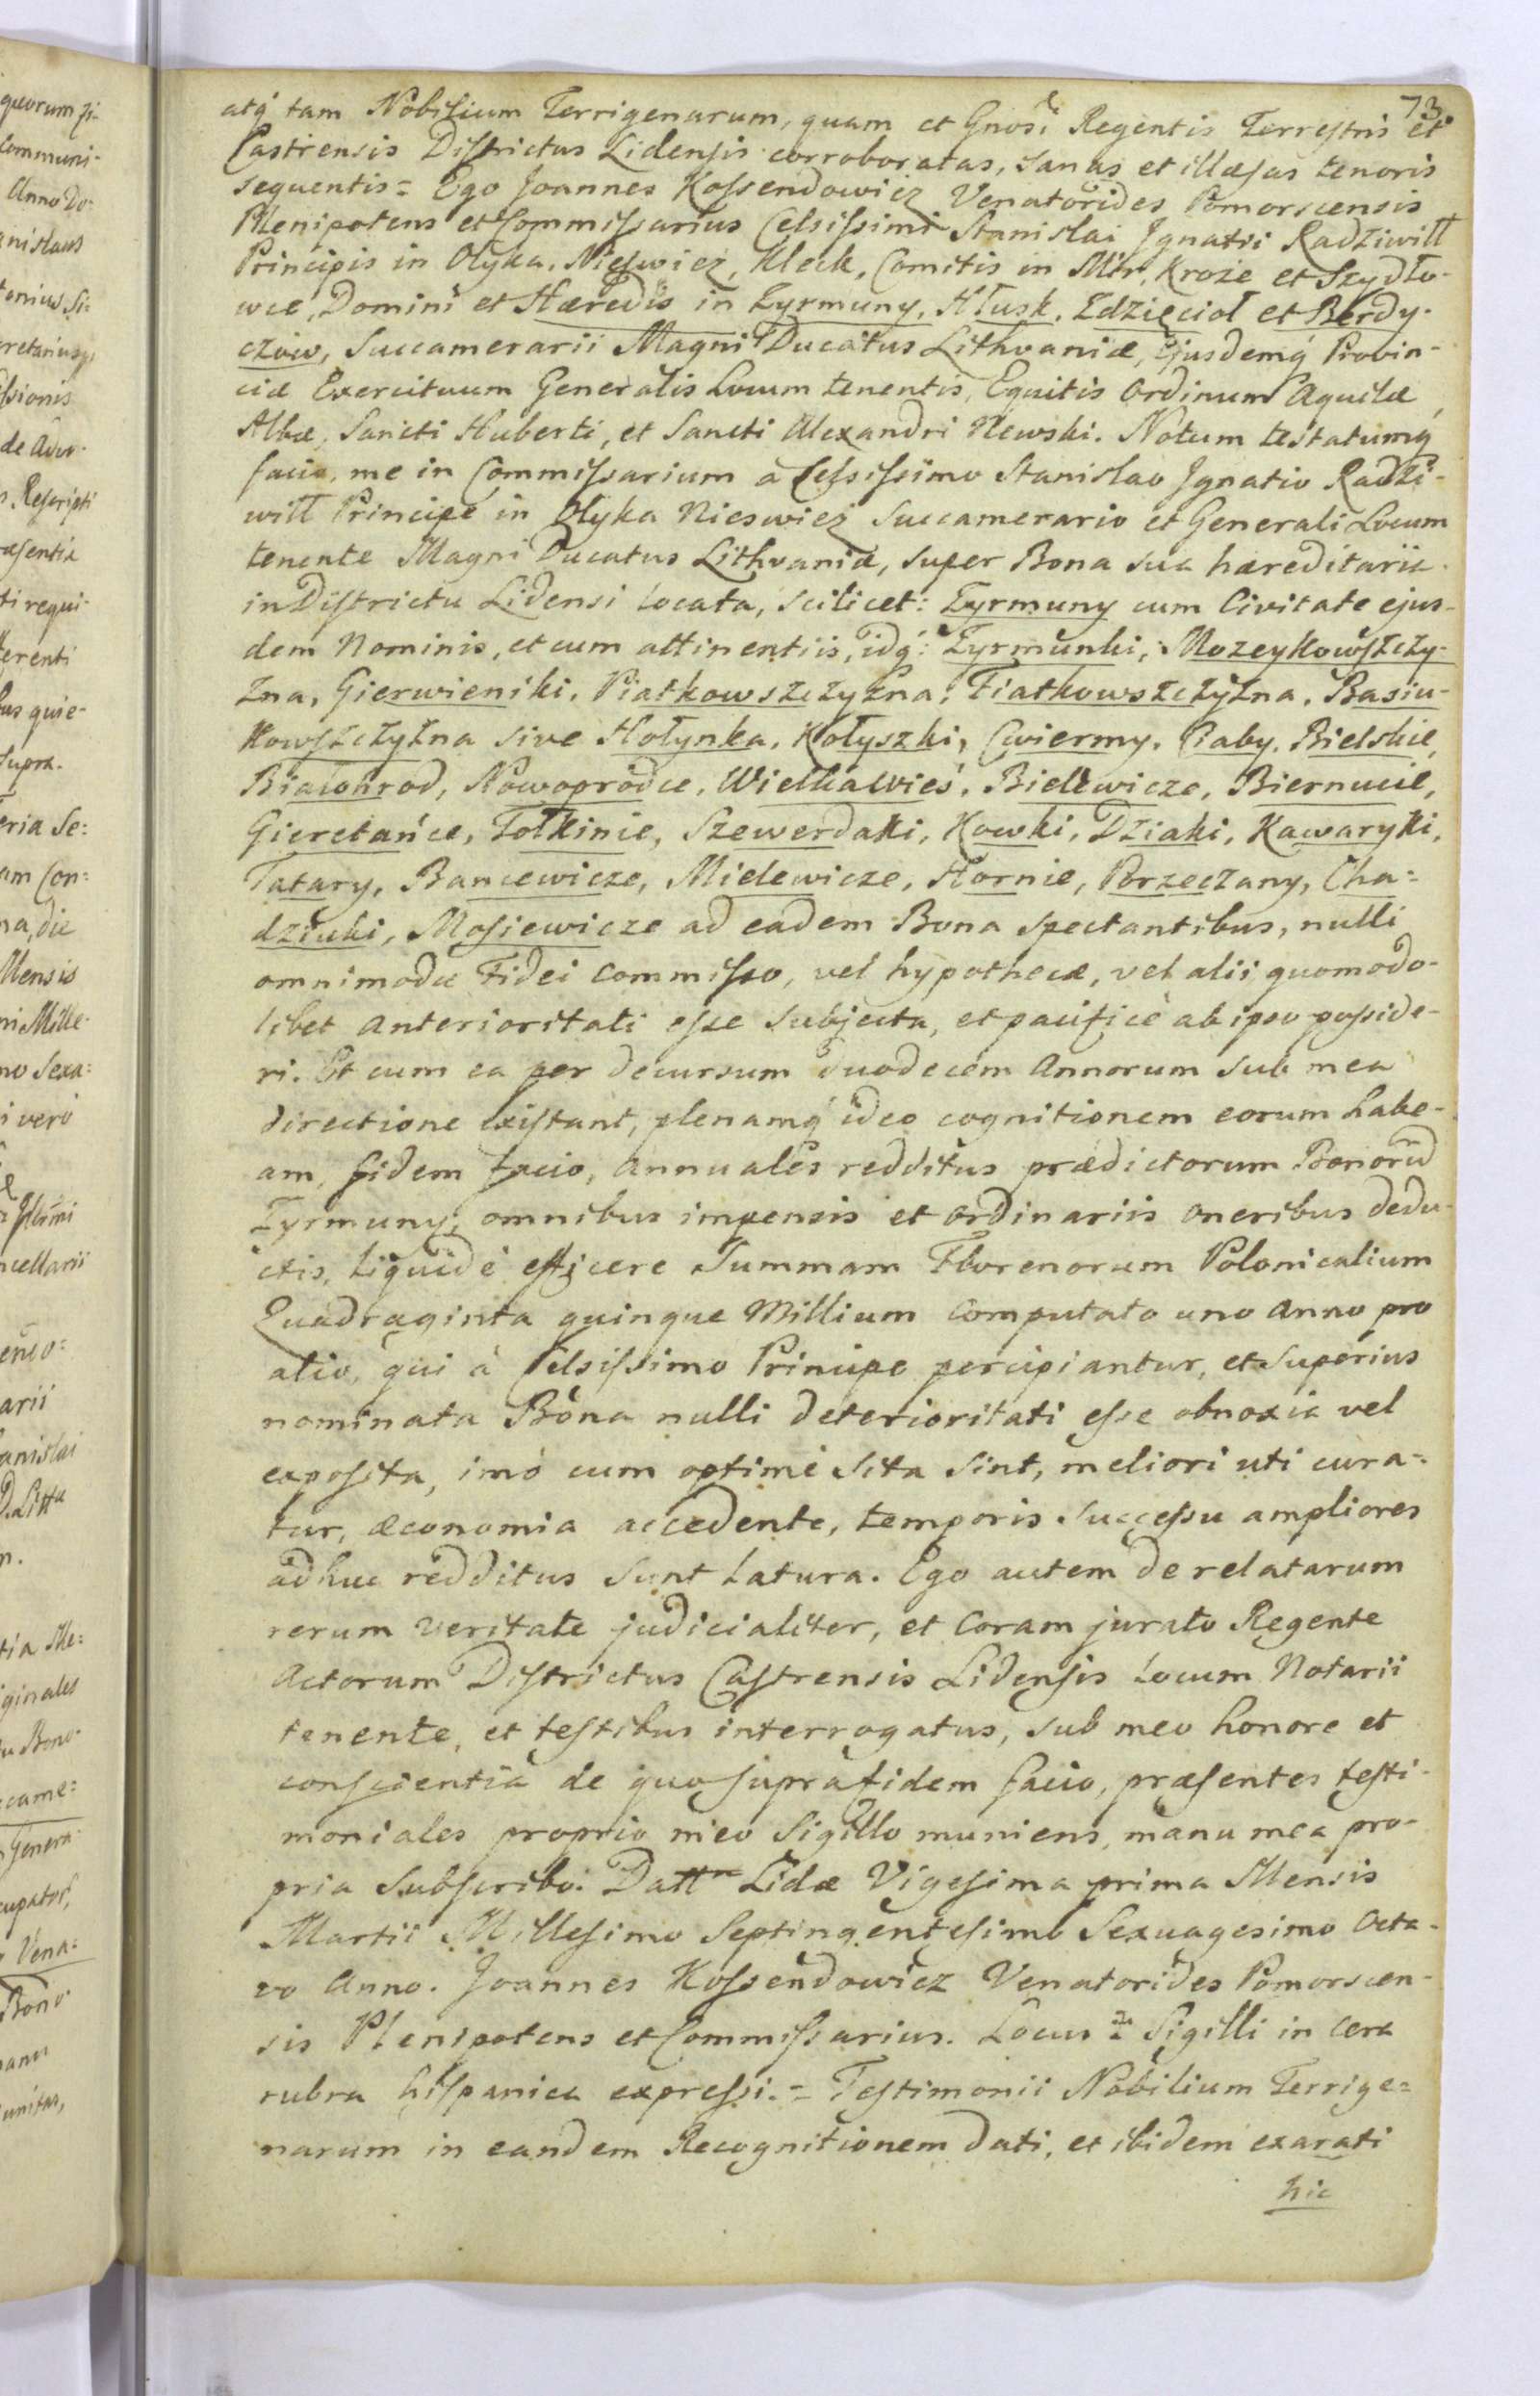 73.
atq́ tam Nobilium Terrigenarum, quam et Gnosi Regentis Terrestris et
Castrensis Districtus Lidensis corroboratas, sanas et illæsas tenoris
sequentis = Ego Joannes Kossendowicz Venatorides Pomorscensis
Plenipotens et Commissarius Celsissimi Stanislai Jgnatii Radziwiłł
Principis in Olyka, Nieswiez, Kleck, Comitis in Mir, Kroże et Szydło-
wce, Domini et Hæredis in Zyrmuny, Hłusk, Zdzięcioł et Berdy-
czow, Succamerarii Magni Ducatus Lithvaniæ, Ejusdemq́ Provin-
ciæ Exercituum Generalis Locum tenentis, Equitis Ordinum Aquilæ
Albæ, Sancti Huberti, et Sancti Alexandri Newski. Notum testatumq́
facio, me in Commissarium a Celsissimo Stanislao Jgnatio Radzi-
wiłł Principe in Olyka Nieswiez Succamerario et Generali Locum
tenente Magni Ducatus Lithvaniæ, super Bona sua hæreditaria
in Districtu Lidensi locata, scilicet: Zyrmuny cum Civitate ejus-
dem Nominis, et cum attinentiis, idq́: Zyrmunki, Mozeykowszczy-
zna, Gierwieniki, Piatkowszczyzna, Fiatkowszczyzna, Basiu-
kowszczyzna sive Hołynka, Kołyszki, Cwiermy, Ciaby, Bielskie,
Białohrod, Nowoprodce, Wielkawieś, Bielewicze, Biernucie,
Gieretańce, Tołkinie, Szewerdaki, Kowki, Dziaki, Kawaryki,
Tatary, Bancewicze, Mielewicze, Hornie, Porzeczany, Cha-
dziuki, Mosiewicze ad eadem Bona spectantibus, nulli
omnimodæ Fidei commisso, vel hypothecæ, vel alii quomodo-
libet anterioritati esse subjecta, et pacificè ab ipso posside-
ri. Et cum ea per decursum duodecem Annorum sub mea
directione existant, plenamq́ ideo cognitionem eorum habe-
am, fidem facio, annuales redditus prædictorum Bonorū
Zyrmuny, omnibus impensis et ordinariis oneribus dedu-
ctis, liquidè efficere Summam Florenorum Polonicalium
Quadraginta quinque Millium computato uno Anno pro
alio, qui à Celsissimo Principe percipiantur, et superius
nominata Bona nulli deterioritati esse obnoxia vel
exposita, imò cum optimè sita sint, meliori uti cura-
tur, æconomia accedente, temporis successu ampliores
adhuc redditus sunt latura. Ego autem de relatarum
rerum veritate judicialiter, et coram jurato Regente
Actorum Districtus Castrensis Lidensis locum Notarii
tenente, et testibus interrogatus, sub meo honore et
conscientia de quo supra fidem facio, præsentes testi-
moniales proprio meo Sigillo muniens, manu mea pro-
pria subscribo. Dattm Lidæ Vigesima prima Mensis
Martii Millesimo Septingentesimo Sexuagesimo Octa-
vo Anno. Joannes Kossendowicz Venatorides Pomorscen-
sis Plenipotens et Commissarius. Locus Sigilli in cera
rubra hispanica expressi. = Testimonii Nobilium Terrige-
narum in eandem Recognitionem dati, et ibidem exarati
hic